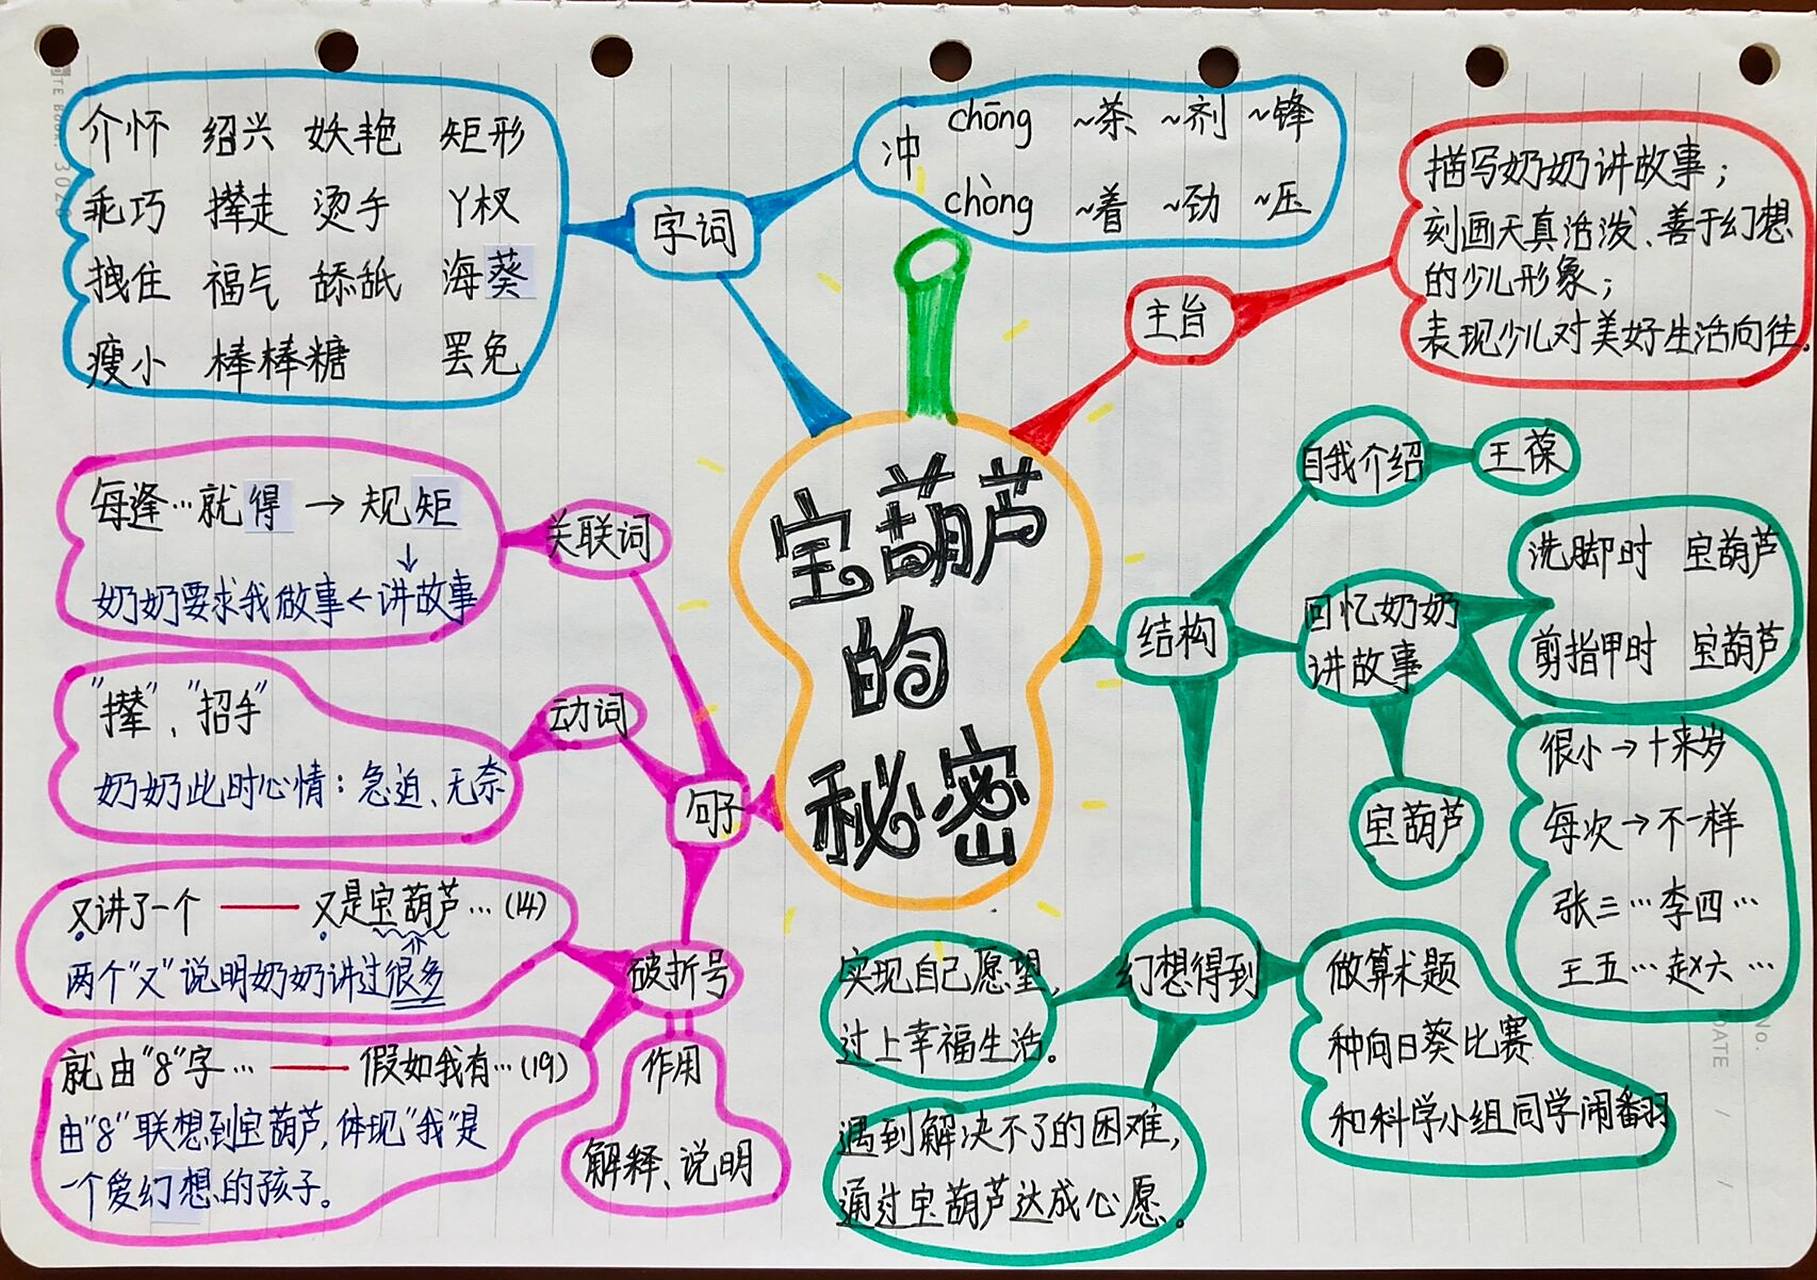 介怀 绍兴 妖艳 矩形
乖巧 撵走 烫手 丫杈
拽住 福气 舔舐 海葵
瘦小 棒棒糖 罢免
字词
冲
chōng ~茶 ~剂 ~锋
chòng ~着 ~劲 ~压
主旨
描写奶奶讲故事；
刻画天真活泼、善于幻想
的少儿形象；
表现少儿对美好生活向往。
宝葫芦
的
秘密
每逢…就得→规矩
↓
奶奶要求我做事←讲故事
关联词
"撵"，"招手"
奶奶此时心情：急迫、无奈
动词
句子
又讲了一个——又是宝葫芦…(14)
两个"又"说明奶奶讲过很多
破折号
就由"8"字…——假如我有…(19)
由"8"联想到宝葫芦，体现"我"是
一个爱幻想的孩子。
作用
解释、说明
结构
自我介绍
王葆
回忆奶奶
讲故事
洗脚时 宝葫芦
剪指甲时 宝葫芦
很小→十来岁
每次→不一样
张三…李四…
王五…赵六…
宝葫芦
幻想得到
实现自己愿望，
过上幸福生活。
遇到解决不了的困难，
通过宝葫芦达成心愿。
做算术题
种向日葵比赛
和科学小组同学闹翻
No.
DATE / /